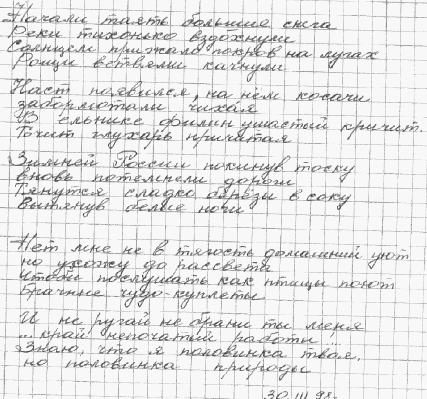 Начали таять большие снега
Реки тихонько вздохнули
Солнцем прижало покров на лугах
Рощи ветвями качнули
Наст появился, на нём косачи
забормотали чихая
В ельнике филин ушастый кричит.
Точит глухарь причитая
Зимней России покинув тоску
вновь потемнели дороги
Тянутся сладко берёзы в соку
Вытянув белые ноги
Нет мне не в тягость домашний уют
но ухожу до рассвета
Чтобы послушать как птицы поют
Брачные чудо-куплеты
И не ругай не брани ты меня
... край непочатый работы ...
Знаю, что я половинка твоя,
но половинка природы
30.III 98г.